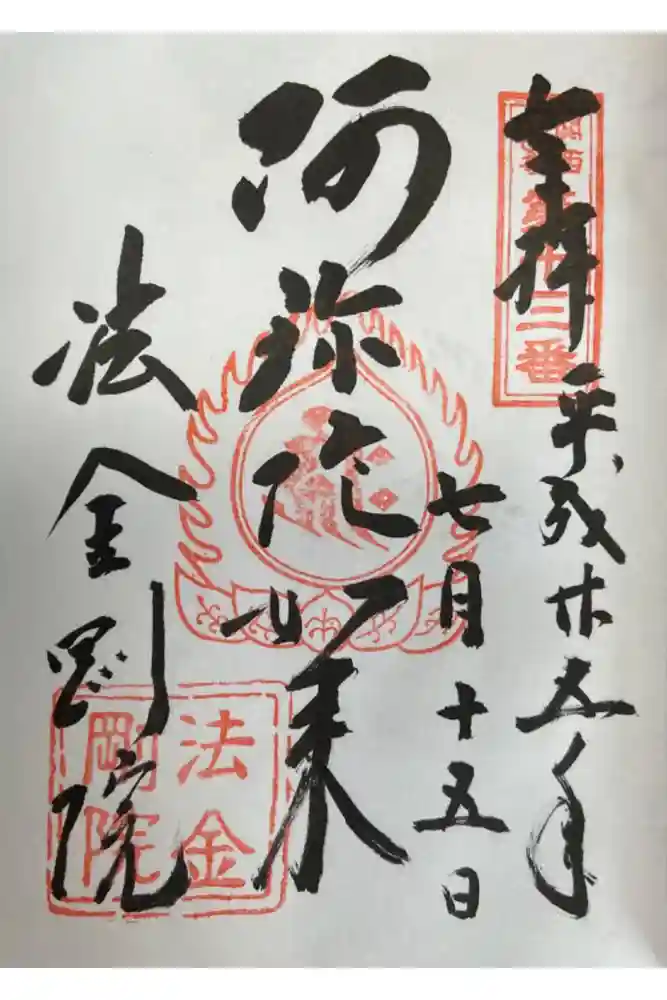 奉拝
平成廿五年
七月十五日
阿弥陀如来
法金剛院
三番
法金
剛院